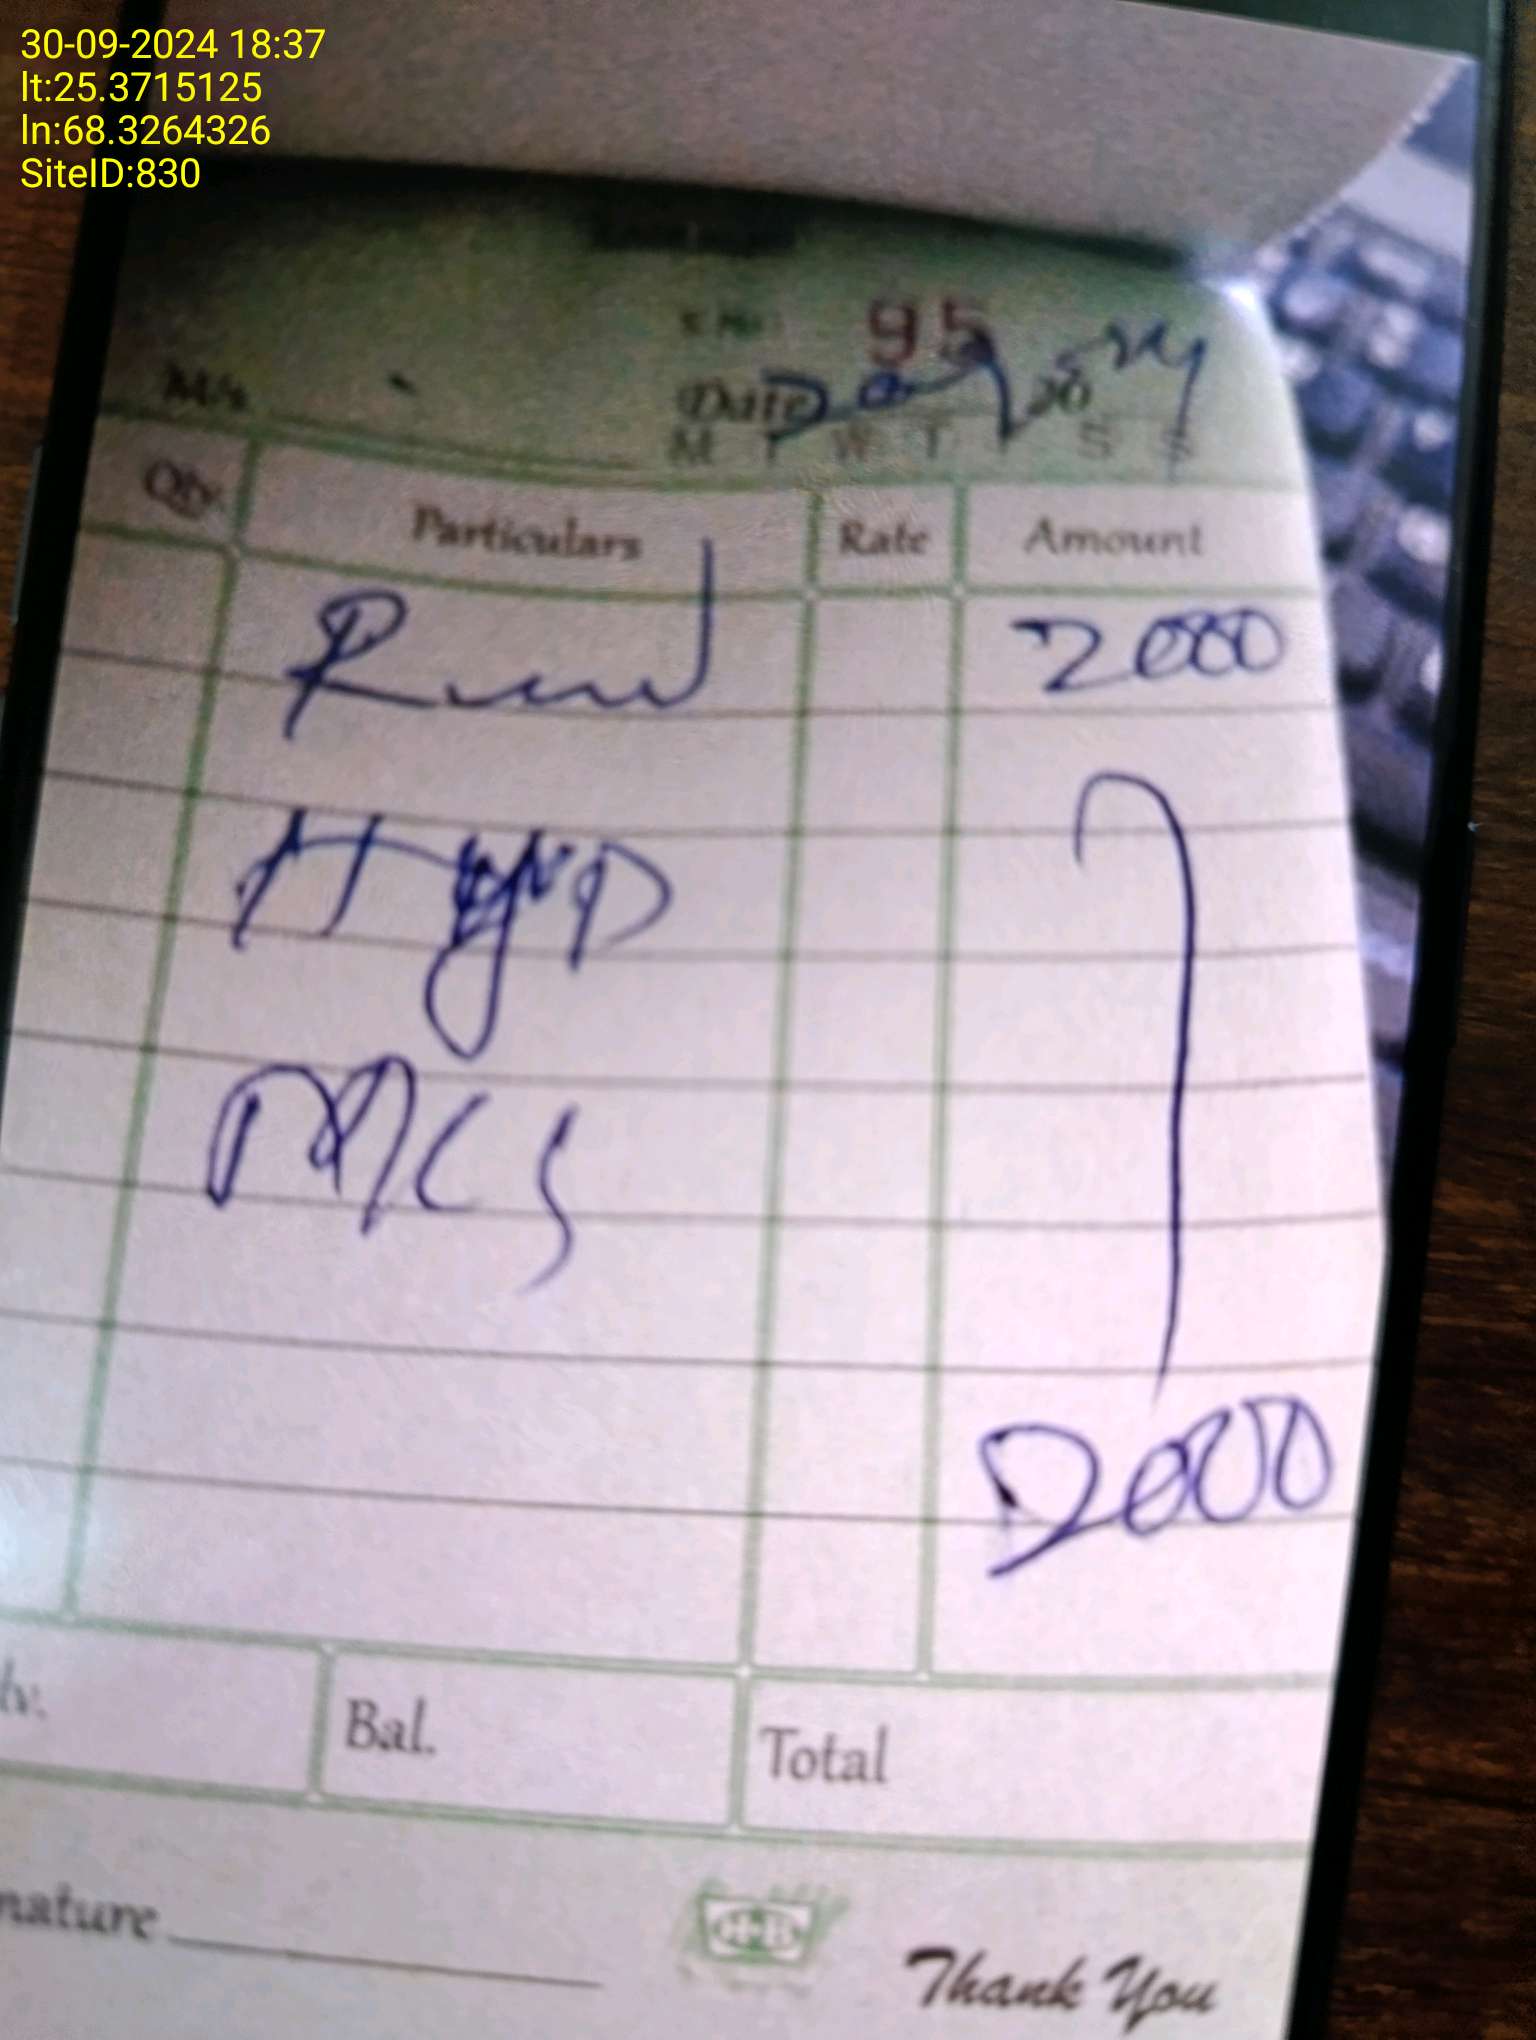 30-09-2024 18:37
lt:25.3715125
ln:68.3264326
SiteID:830
S.No. 95
M/s
Date 20
M T W T F S S
Qty. Particulars Rate Amount
2000
Hyd
MCS
2000
Bal. Total
Thank You